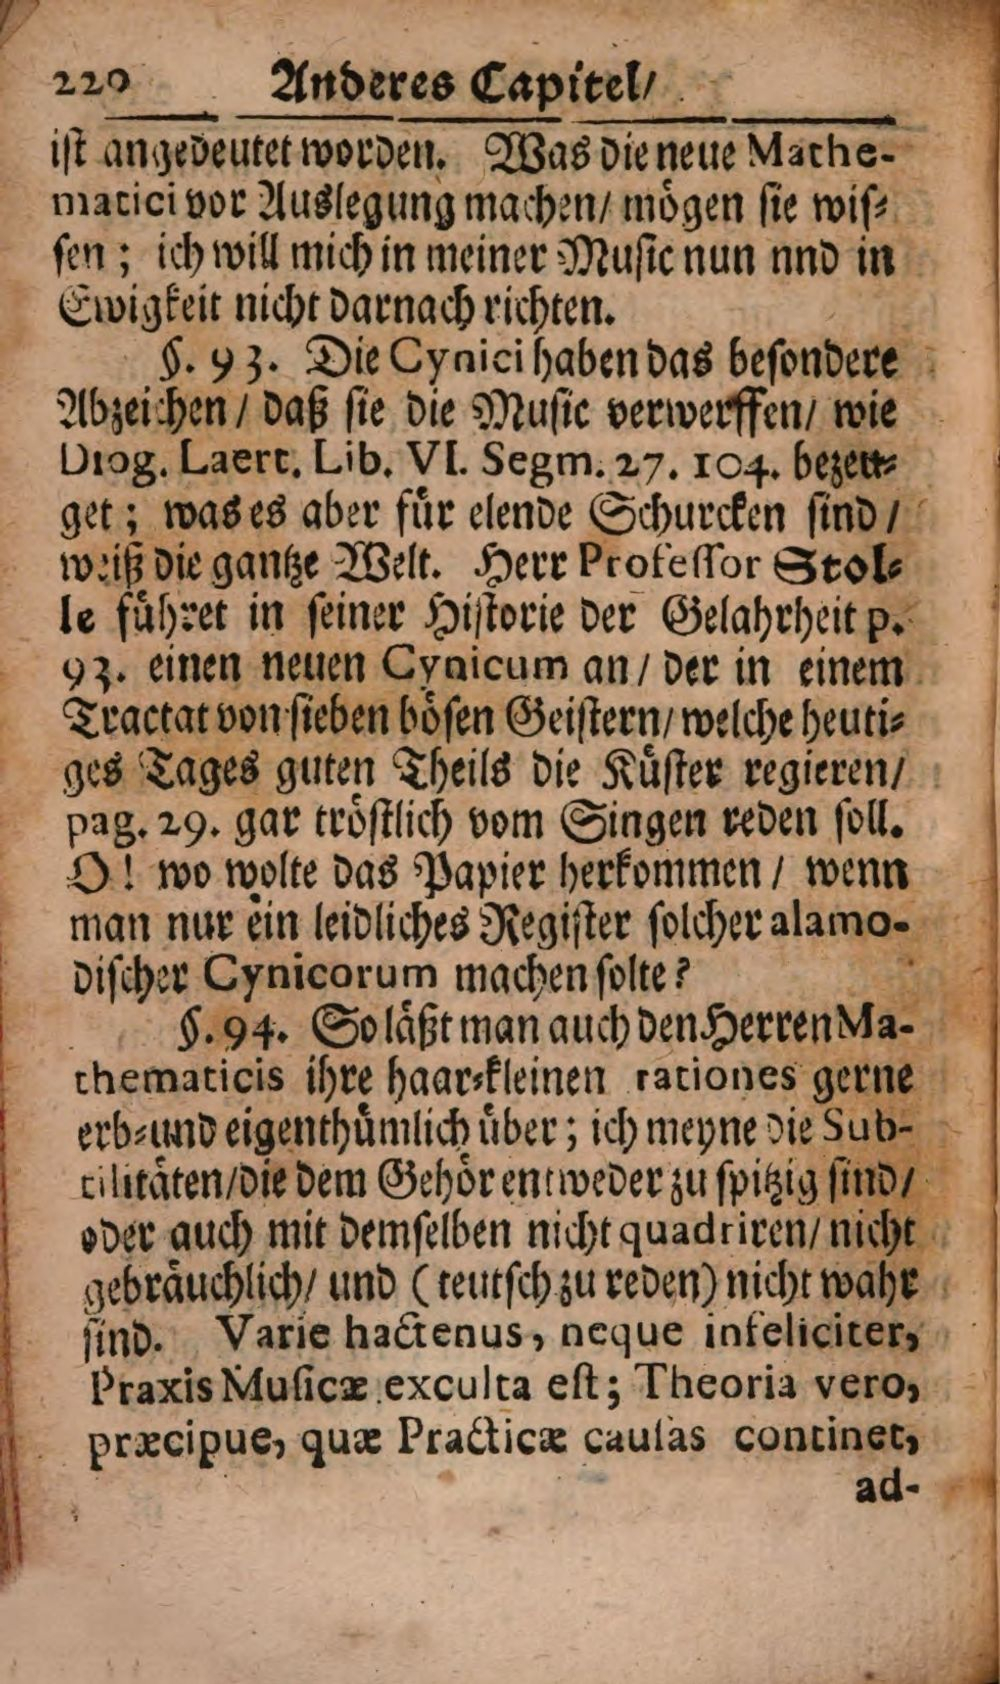 220 Anderes Capitel/
ist angedeutet worden. Was die neue Mathe-
matici vor Auslegung machen/ mögen sie wis-
sen; ich will mich in meiner Music nun nnd in
Ewigkeit nicht darnach richten.
§. 93. Die Cynici haben das besondere
Abzeichen/ daß sie die Music verwerffen/ wie
Diog. Laert. Lib. VI. Segm. 27. 104. bezeu-
get; was es aber für elende Schurcken sind/
weiß die gantze Welt. Herr Professor Stol-
le führet in seiner Historie der Gelahrheit p.
93. einen neuen Cynicum an/ der in einem
Tractat von sieben bösen Geistern/ welche heuti-
ges Tages guten Theils die Küster regieren/
pag. 29. gar tröstlich vom Singen reden soll.
O! wo wolte das Papier herkommen/ wenn
man nur ein leidliches Register solcher alamo-
discher Cynicorum machen solte?
§. 94. So läßt man auch den Herren Ma-
thematicis ihre haar-kleinen rationes gerne
erb- und eigenthümlich über; ich meyne die Sub-
tilitäten/ die dem Gehör entweder zu spitzig sind/
oder auch mit demselben nicht quadriren/ nicht
gebräuchlich/ und (teutsch zu reden) nicht wahr
sind. Varie hactenus, neque infeliciter,
Praxis Musicæ exculta est; Theoria vero,
præcipue, quæ Practicæ causas continet,
ad-